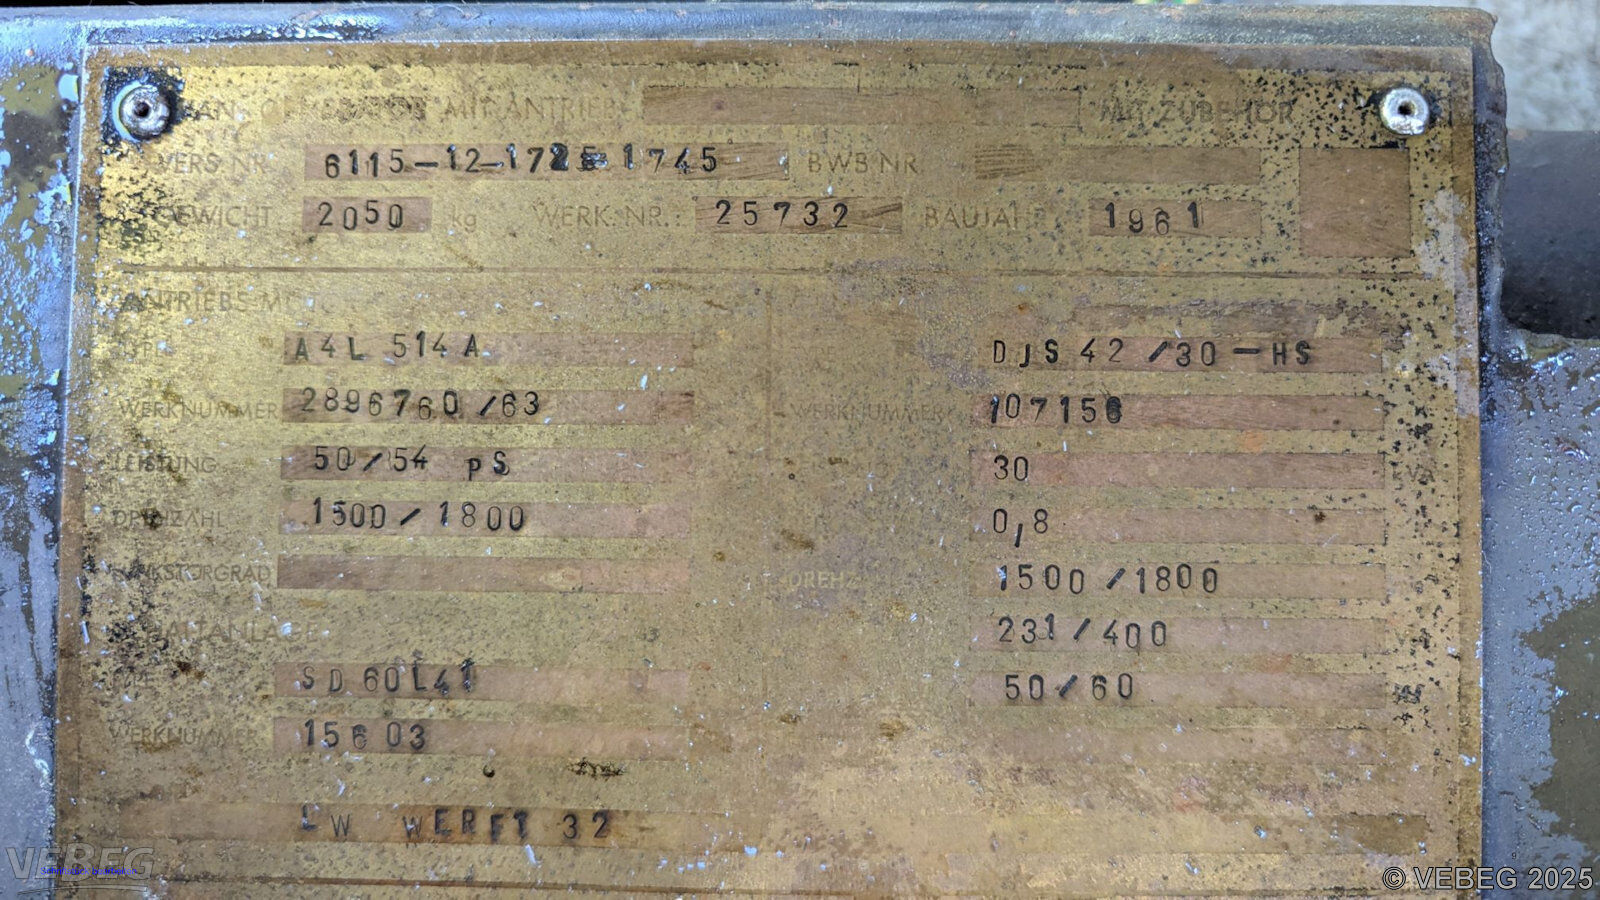 MIT ANTRIEB MIT ZUBEHÖR
VERS. NR. 6115-12- 1745 BWB NR.
GEWICHT 2050 kg WERK.-NR.: 25732 BAUJAHR 1961
ANTRIEBS-MOTOR
A4L 514 A DJS 42/30-HS
WERKNUMMER 2896760/63 WERKNUMMER 107156
LEISTUNG 50/54 PS 30
DREHZAHL 1500/1800 0,8
FUNKSTÖRGRAD DREHZ 1500/1800
SCHALTANLAGE 231/400 V
SD 60L41 50/60
WERKNUMMER 15603
LW WERFT 32
VEBEG
© VEBEG 2025